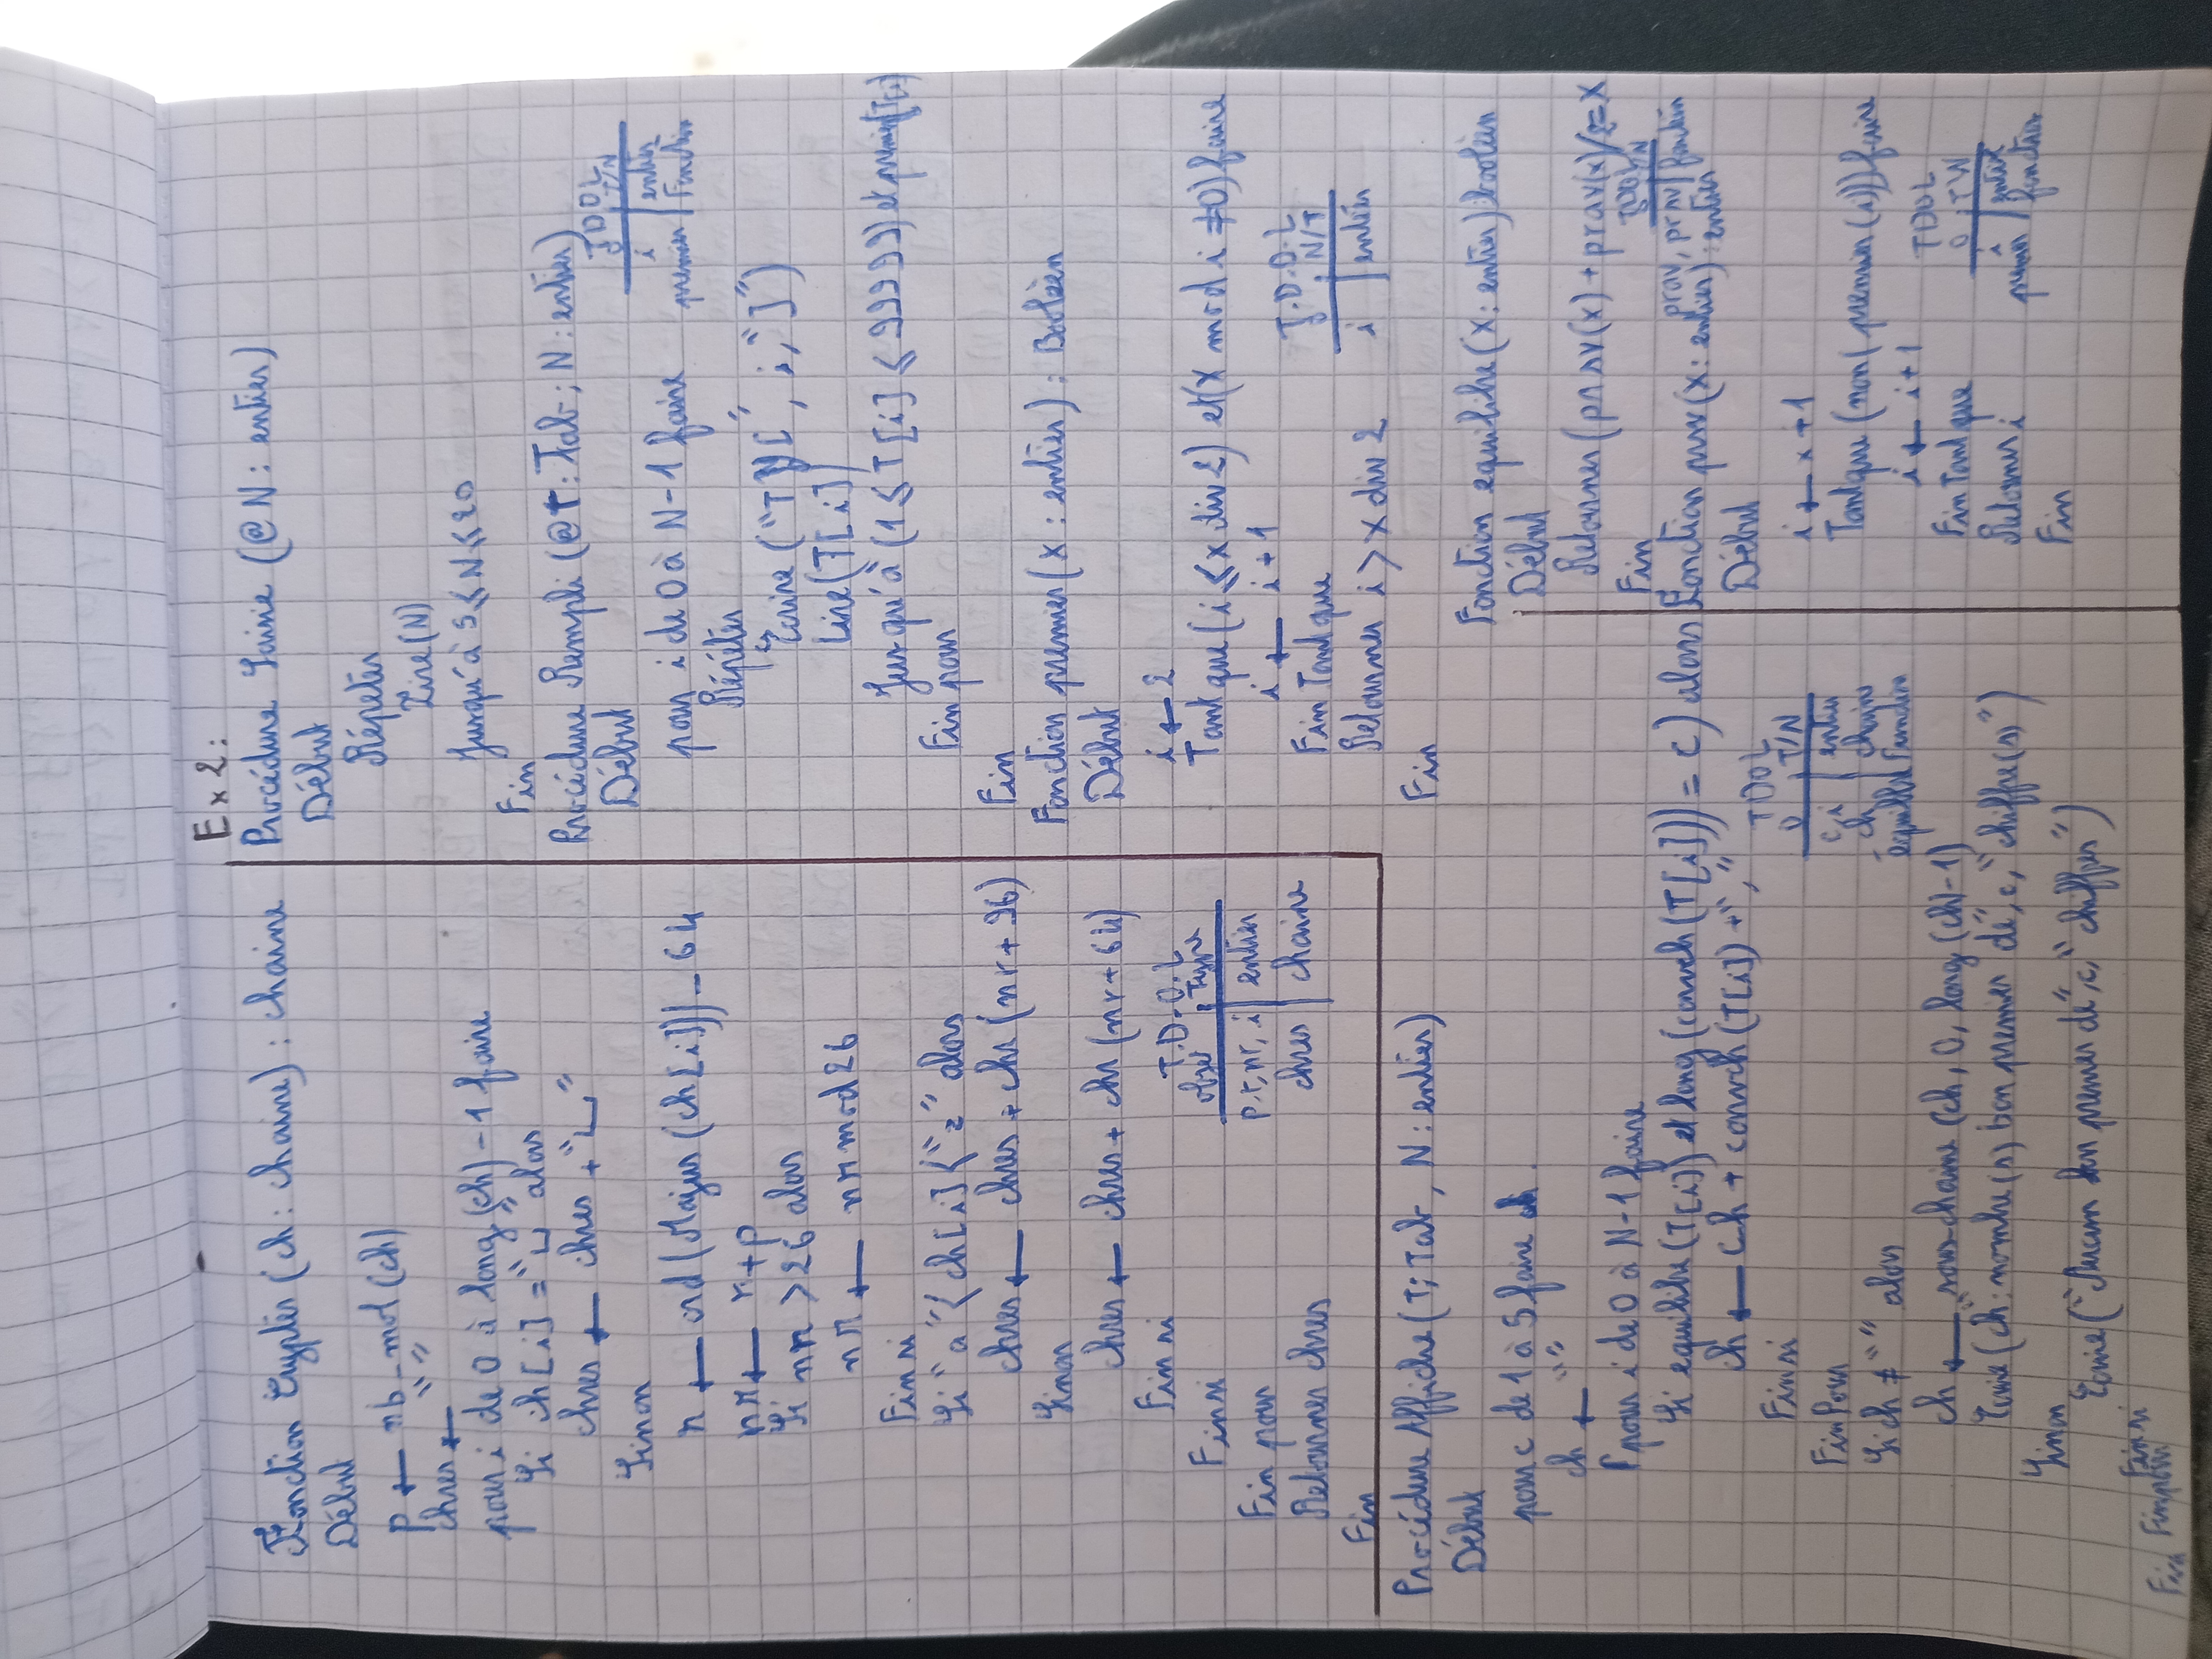 Fonction Crypter (ch : chaine) : chaine
Début
P ← nb_mot (ch)
chres ← " "
pour i de 0 à long (ch) - 1 faire
Si ch [i] = "␣" alors
chres ← chres + "␣"
Sinon
r ← ord (Majus (ch [i])) - 64
nr ← r + p
Si nr > 26 alors
nr ← nr mod 26
Fin si
Si "a" < ch [i] < "z" alors
chres ← chres + chr (nr + 96)
Sinon
chres ← chres + chr (nr + 64)
Fin si
Fin si
Fin pour
Retourner chres
Fin
T.D.O.L
objet Type
p, r, nr, i entier
chres chaine
Ex 2 :
Procédure Saisie (@ N : entier)
Début
Répéter
Lire (N)
Jusqu'à 5 ≤ N ≤ 20
Fin
Procédure Rempli (@ t : Tab ; N : entier)
Début
pour i de 0 à N - 1 faire
Répéter
Ecrire ("T [", i, "]")
Lire (T [i])
Jusqu'à (1 ≤ T [i] ≤ 99999) et premier (T[i])
Fin pour
Fin
TDOL
O T/N
i entier
premier Fonction
Fonction premier (x : entier) : Booléen
Début
i ← 2
Tant que (i ≤ x div 2) et (x mod i ≠ 0) faire
i ← i + 1
Fin Tant que
Retourner i > x div 2
Fin
T.D.O.L
N/T
i entier
Procédure Affiche (T : Tab, N : entier)
Début
pour c de 1 à 5 faire
ch ← " "
Pour i de 0 à N - 1 faire
Si equilibre (T [i]) et long (convch (T [i])) = c) alors
ch ← ch + convch (T [i]) + ","
Fin si
Fin Pour
Si ch ≠ " " alors
ch ← sous-chaine (ch, 0, long (ch) - 1)
Ecrire (ch : "nombre(s) bon premier de", c, "chiffre(s)")
Sinon
Ecrire ("Aucun bon premier de", c, "chiffres")
Fin si
Fin pour
Fin
TDOL
O T/N
c, i entier
ch chaine
équilibre Fonction
Fonction equilibre (x : entier) : booléen
Début
Retourner (prsv (x) + prav (x) / 2 = x
Fin
TDOL
O T/N
prav, prsv fonction
Fonction prsv (x : entier) : entier
Début
i ← x + 1
Tant que (non (premier (i))) faire
i ← i + 1
Fin Tant que
Retourner i
Fin
TDOL
O T/N
i entier
premier fonction